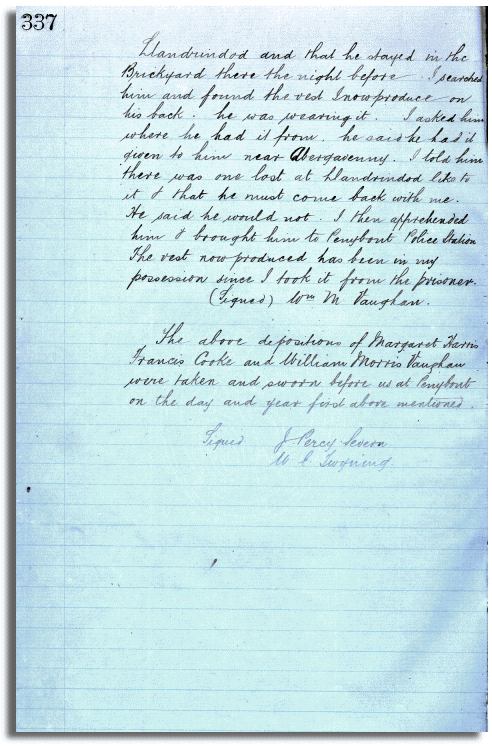 337
Llandrindod and that he stayed in the
Brickyard there the night before. I searched
him and found the vest I now produce on
his back. he was wearing it. I asked him
where he had it from. he said he had it
given to him near Abergavenny. I told him
there was one lost at Llandrindod like to
it & that he must come back with me.
He said he would not. I then apprehended
him & brought him to Penybont Police Station
The vest now produced has been in my
possession since I took it from the prisoner.
(Signed) Wm M Vaughan.
The above depositions of Margaret Harris
Francis Cooke and William Morris Vaughan
were taken and sworn before us at Penybont
on the day and year first above mentioned.
Signed J Percy Severn
W C Twyning.